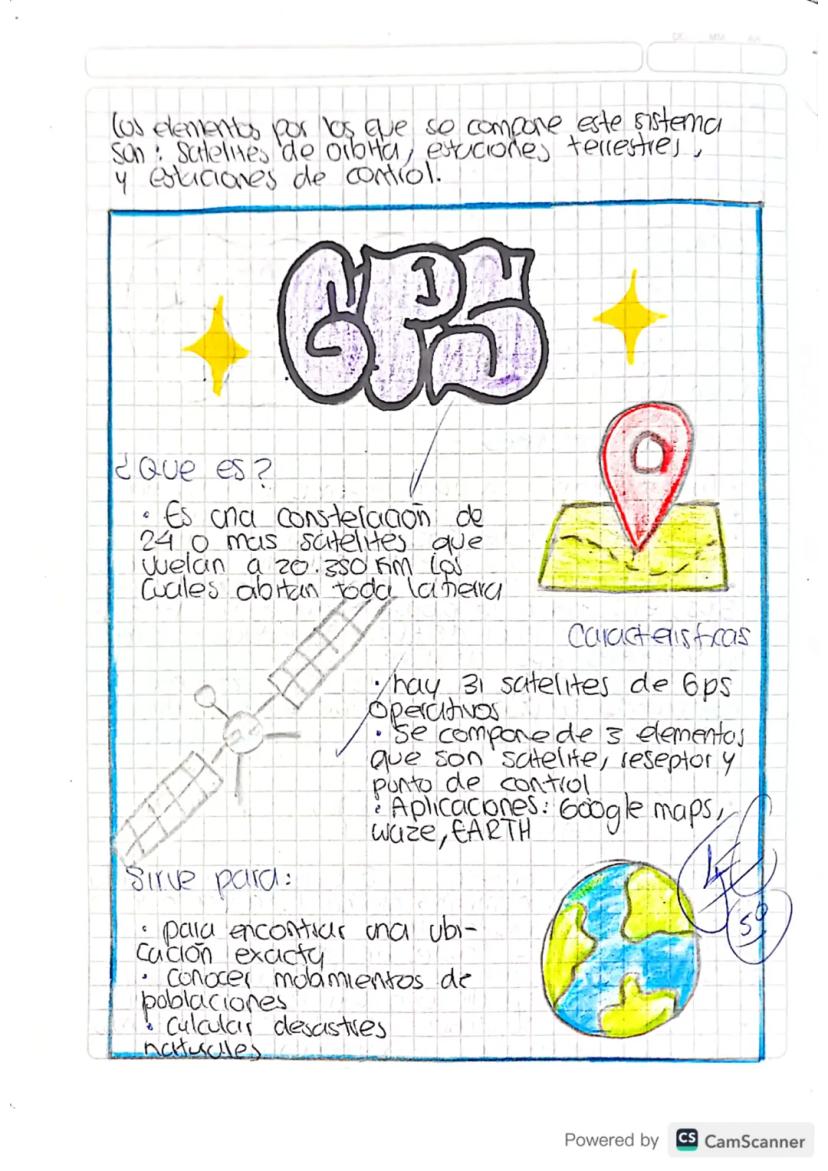 DD MM AA
Los elementos por los que se compone este sistema
son: satelites de orbita, estaciones terrestres,
y estaciones de control.
GPS
¿Que es?
• Es una constelación de
24 o mas satelites que
vuelan a 20.350 km los
cuales abitan toda la tierra
Caracteristicas
• hay 31 satelites de Gps
operativos
• Se compone de 3 elementos
que son satelite, reseptor y
punto de control
• Aplicaciones: Google maps,
waze, EARTH
Sirve para:
• para encontrar una ubi-
cación exacta
• conocer mobimientos de
poblaciones
• calcular desastres
naturales
50
Powered by CS CamScanner